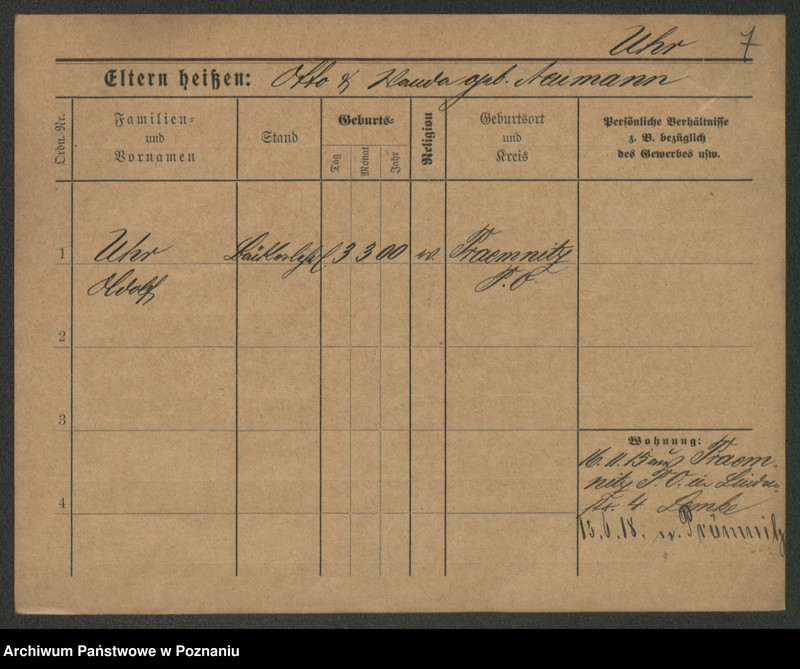 Uhr 7
Eltern heißen: Otto & Wanda geb. Neumann
Ordn.-Nr.
Familien-
und
Vornamen
Stand
Geburts-
Tag
Monat
Jahr
Religion
Geburtsort
und
Kreis
Persönliche Verhältnisse
z. B. bezüglich
des Gewerbes usw.
1 Uhr Bäckerlehrl. 3 3 00 ev. Praemnitz
P. O.
2
3
4
Wohnung:
16. 11. 15 aus Praem-
nitz P. O. in Linden-
str. 4 Lemke
13.6.18. n. Prämnitz
Archiwum Państwowe w Poznaniu